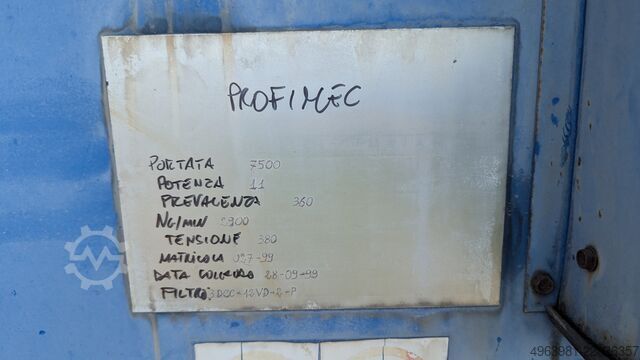 PROFIMEC
PORTATA 7500
POTENZA 11
PREVALENZA 360
NG/MIN 2900
TENSIONE 380
MATRICOLA 027-99
DATA COLLAUDO 28-09-99
FILTRO